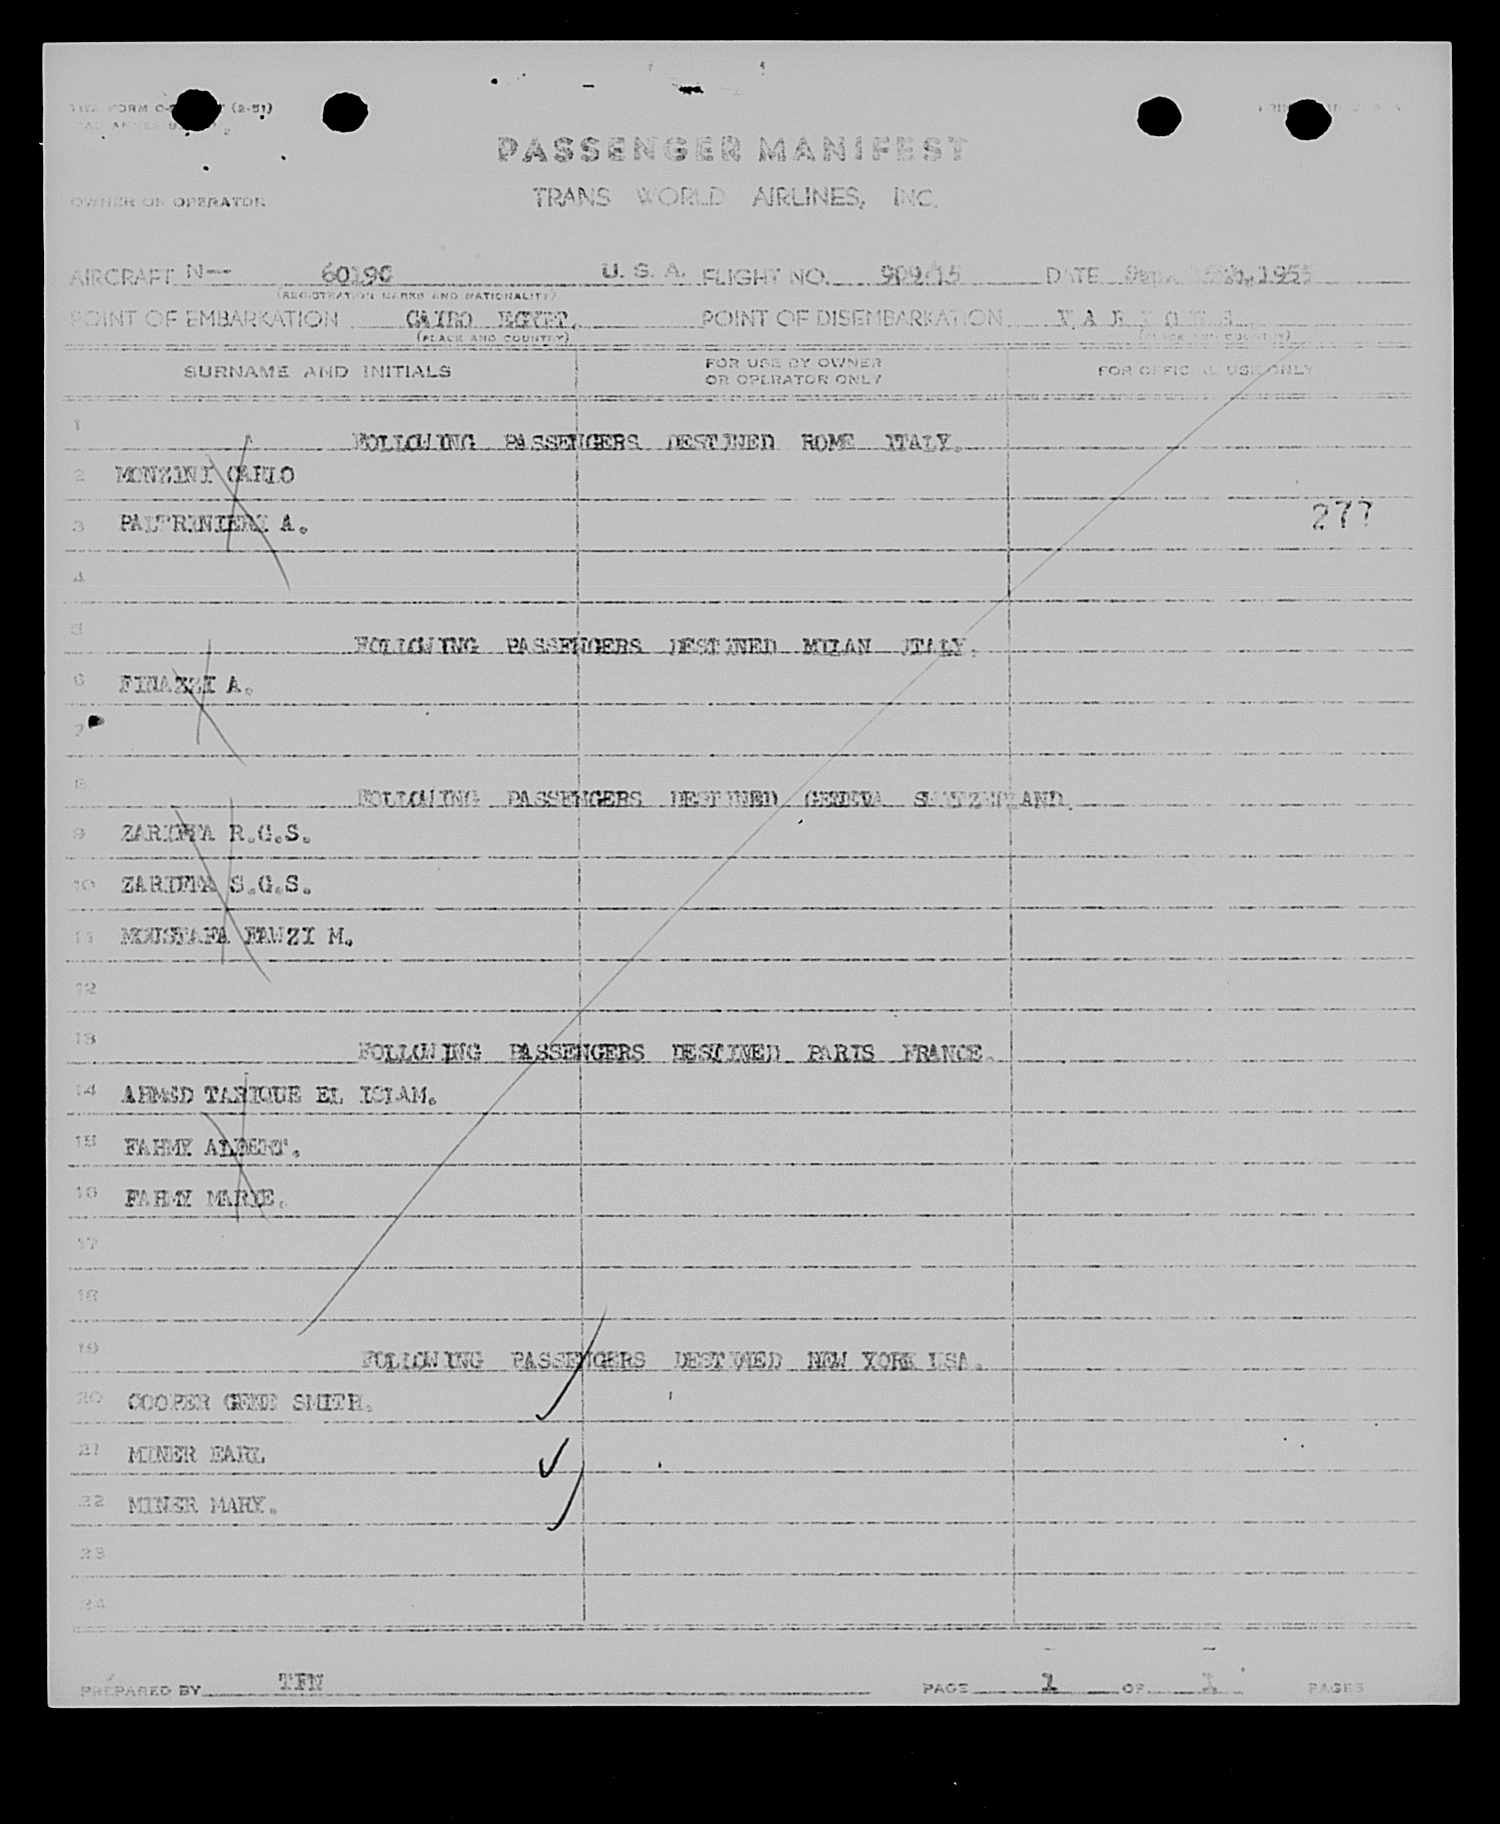 (2-51)
PASSENGER MANIFEST
OWNER OR OPERATOR TRANS WORLD AIRLINES, INC.
AIRCRAFT N-- 60190 U. S. A. FLIGHT NO. 909/15 DATE 1955
(REGISTRATION MARKS AND NATIONALITY)
POINT OF EMBARKATION CAIRO EGYPT. POINT OF DISEMBARKATION V A R I O U S
(PLACE AND COUNTRY) (PLACE AND COUNTRY)
SURNAME AND INITIALS FOR USE BY OWNER OR OPERATOR ONLY FOR OFFICIAL USE ONLY
1 FOLLOWING PASSENGERS DESTINED ROME ITALY.
2 MONZINI CARLO
3 PALTRINIERI A. 277
4
5 FOLLOWING PASSENGERS DESTINED MILAN ITALY.
6 FINAZZI A.
7
8 FOLLOWING PASSENGERS DESTINED GENEVA SWITZERLAND.
9 ZARIFFA R.G.S.
10 ZARIFFA S.G.S.
11 MOUSTAFA FAWZI M.
12
13 FOLLOWING PASSENGERS DESTINED PARIS FRANCE.
14 AHMED TARIQUE EL ISLAM.
15 FAHMY ALBERT.
16 FAHMY MARIE.
17
18
19 FOLLOWING PASSENGERS DESTINED NEW YORK USA.
20 COOPER GENE SMITH.
21 MINER EARL
22 MINER MARY.
23
24
PREPARED BY TFN PAGE 1 OF 1 PAGES